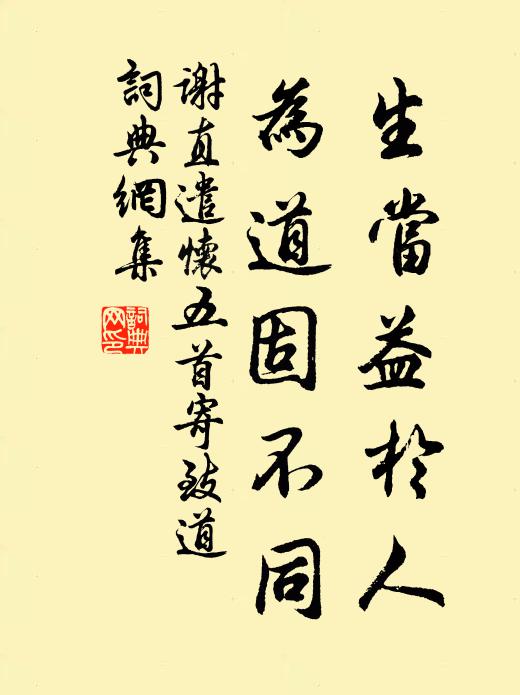 生當益於人
為道固不同
謝直遣懷五首寄致道
詞典網集
詞典網印